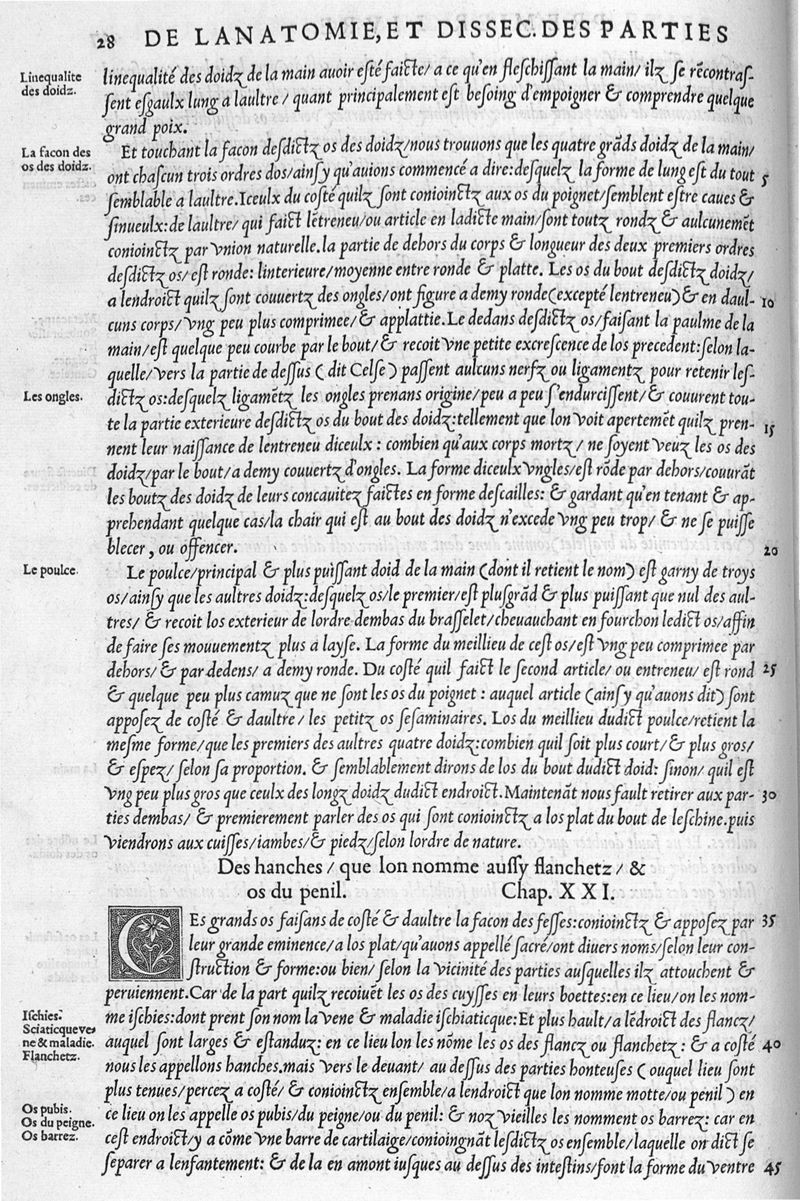 28 DE LANATOMIE, ET DISSEC. DES PARTIES
Linequalite
des doidz.
linequalité des doidz de la main auoir esté faicte/ a ce qu'en fleschissant la main/ ilz se rēcontras-
sent esgaulx lung a laultre / quant principalement est besoing d'empoigner & comprendre quelque
grand poix.
La facon des
os des doidz.
Et touchant la facon desdictz os des doidz/nous trouuons que les quatre grāds doidz de la main/
ont chascun trois ordres dos/ainsy qu'auions commencé a dire:desquelz la forme de lung est du tout 5
semblable a laultre.Iceulx du costé quilz sont conioinctz aux os du poignet/semblent estre caues &
sinueulx:de laultre/ qui faict lētreneu/ou article en ladicte main/sont toutz rondz & aulcunemēt
conioinctz par vnion naturelle.la partie de dehors du corps & longueur des deux premiers ordres
desdictz os/est ronde: linterieure/moyenne entre ronde & platte. Les os du bout desdictz doidz/
a lendroict quilz sont couuertz des ongles/ont figure a demy ronde(excepté lentreneu)& en daul- 10
cuns corps/vng peu plus comprimee/& applattie.Le dedans desdictz os/faisant la paulme de la
main/est quelque peu courbe par le bout/& recoit vne petite excrescence de los precedent:selon la-
quelle/vers la partie de dessus ( dit Celse ) passent aulcuns nerfz ou ligamentz pour retenir les-
Les ongles.
dictz os:desquelz ligamētz les ongles prenans origine/peu a peu s'endurcissent/& couurent tou-
te la partie exterieure desdictz os du bout des doidz:tellement que lon voit apertemēt quilz pren- 15
nent leur naissance de lentreneu diceulx : combien qu'aux corps mortz / ne soyent veuz les os des
doidz/par le bout/a demy couuertz d'ongles. La forme diceulx vngles/est rōde par dehors/couurāt
les boutz des doidz de leurs concauitez faictes en forme descailles: & gardant qu'en tenant & ap-
prehendant quelque cas/la chair qui est au bout des doidz n'excede vng peu trop/ & ne se puisse
blecer, ou offencer. 20
Le poulce.
Le poulce/principal & plus puissant doid de la main (dont il retient le nom) est garny de troys
os/ainsy que les aultres doidz:desquelz os/le premier/est plusgrād & plus puissant que nul des aul-
tres/ & recoit los exterieur de lordre dembas du brasselet/cheuauchant en fourchon ledict os/affin
de faire ses mouuementz plus a layse. La forme du meillieu de cest os/est vng peu comprimee par
dehors/ & par dedens/ a demy ronde. Du costé quil faict le second article/ ou entreneu/ est rond 25
& quelque peu plus camuz que ne sont les os du poignet : auquel article (ainsy qu'auons dit) sont
apposez de costé & daultre/ les petitz os sesaminaires. Los du meillieu dudict poulce/retient la
mesme forme/que les premiers des aultres quatre doidz:combien quil soit plus court/& plus gros/
& espez/ selon sa proportion. & semblablement dirons de los du bout dudict doid: sinon/ quil est
vng peu plus gros que ceulx des longz doidz dudict endroict.Maintenāt nous fault retirer aux par- 30
ties dembas/ & premierement parler des os qui sont conioinctz a los plat du bout de leschine.puis
viendrons aux cuisses/iambes/& piedz/selon lordre de nature.
Des hanches / que lon nomme aussy flanchetz / &
os du penil. Chap. XXI.
CEs grands os faisans de costé & daultre la facon des fesses:conioinctz & apposez par 35
leur grande eminence/a los plat/qu'auons appellé sacré/ont diuers noms/selon leur con-
struction & forme:ou bien/ selon la vicinité des parties ausquelles ilz attouchent &
peruiennent.Car de la part quilz recoiuēt les os des cuysses en leurs boettes:en ce lieu/on les nom-
Ischies.
Sciaticque ve⸗
ne & maladie.
Flanchetz.
me ischies:dont prent son nom la vene & maladie ischiaticque:Et plus hault/a lēdroict des flancz/
auquel sont larges & estanduz: en ce lieu lon les nōme les os des flancz ou flanchetz : & a costé 40
nous les appellons hanches.mais vers le deuant/ au dessus des parties honteuses ( ouquel lieu sont
plus tenues/percez a costé/ & conioinctz ensemble/a lendroict que lon nomme motte/ou penil ) en
Os pubis.
Os du peigne.
Os barrez.
ce lieu on les appelle os pubis/du peigne/ou du penil: & noz vieilles les nomment os barrez: car en
cest endroict/y a cōme vne barre de cartilaige/conioingnāt lesdictz os ensemble/laquelle on dict se
separer a lenfantement: & de la en amont iusques au dessus des intestins/font la forme du ventre 45